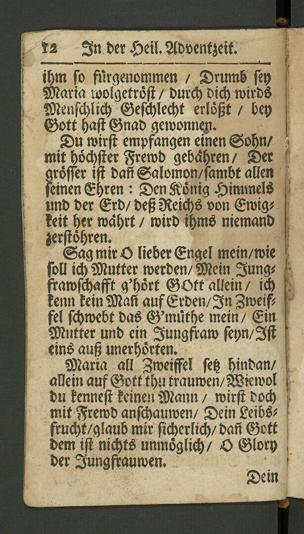 12 In der Heil. Adventzeit.
ihm so fürgenommen / Drumb sey
Maria wolgetröst / durch dich wirds
Menschlich Geschlecht erlößt / bey
Gott hast Gnad gewonnen.
Du wirst empfangen einen Sohn /
mit höchster Frewd gebähren / Der
grösser ist dañ Salomon / sambt allen
seinen Ehren : Den König Himmels
und der Erd / deß Reichs von Ewig-
keit her währt / wird ihms niemand
zerstöhren.
Sag mir O lieber Engel mein / wie
soll ich Mutter werden / Mein Jung-
frawschafft g'hört GOtt allein / ich
kenn kein Mañ auf Erden / In Zweif-
fel schwebt das G'müthe mein / Ein
Mutter und ein Jungfraw seyn / Ist
eins auß unerhörten.
Maria all Zweiffel setz hindan /
allein auf Gott thu trauwen / Wiewol
du kennest keinen Mann / wirst doch
mit Frewd anschauwen / Dein Leibs-
frucht / glaub mir sicherlich / dañ Gott
dem ist nichts unmöglich / O Glory
der Jungfrauwen.
Dein